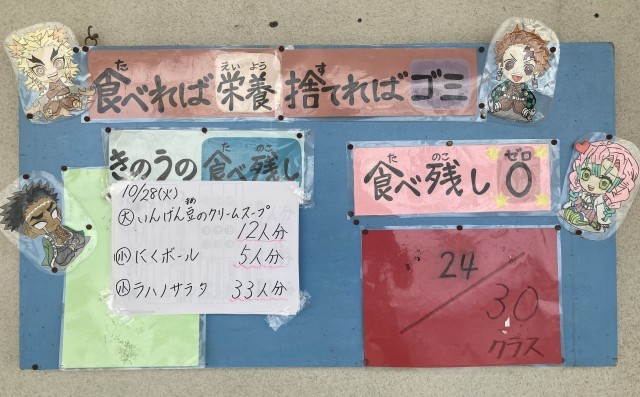 食べれば栄養 捨てればゴミ
きのうの食べ残し
10/28(火)
大 いんげん豆のクリームスープ
12人分
小 にくボール 5人分
小 ラハノサラタ 33人分
食べ残し 0
24/30
クラス